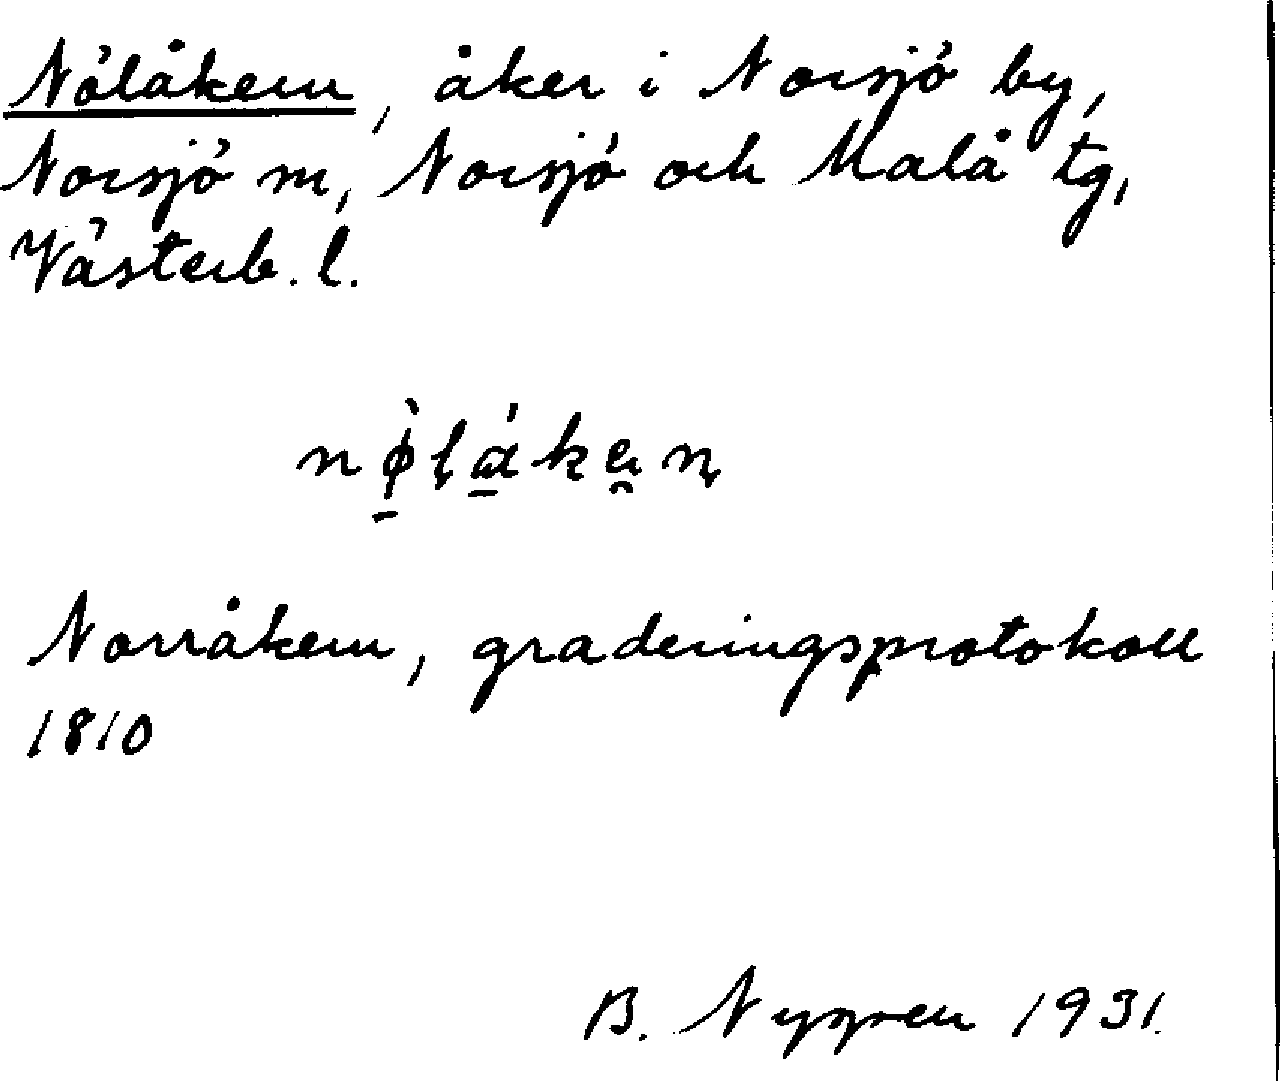 Nölåkern, åker i Norsjö by,
Norsjö sn, Norsjö och Malå tg,
Västerb. l.
Norråkern, graderingsprotokoll
1810
B. Nygren 1931.